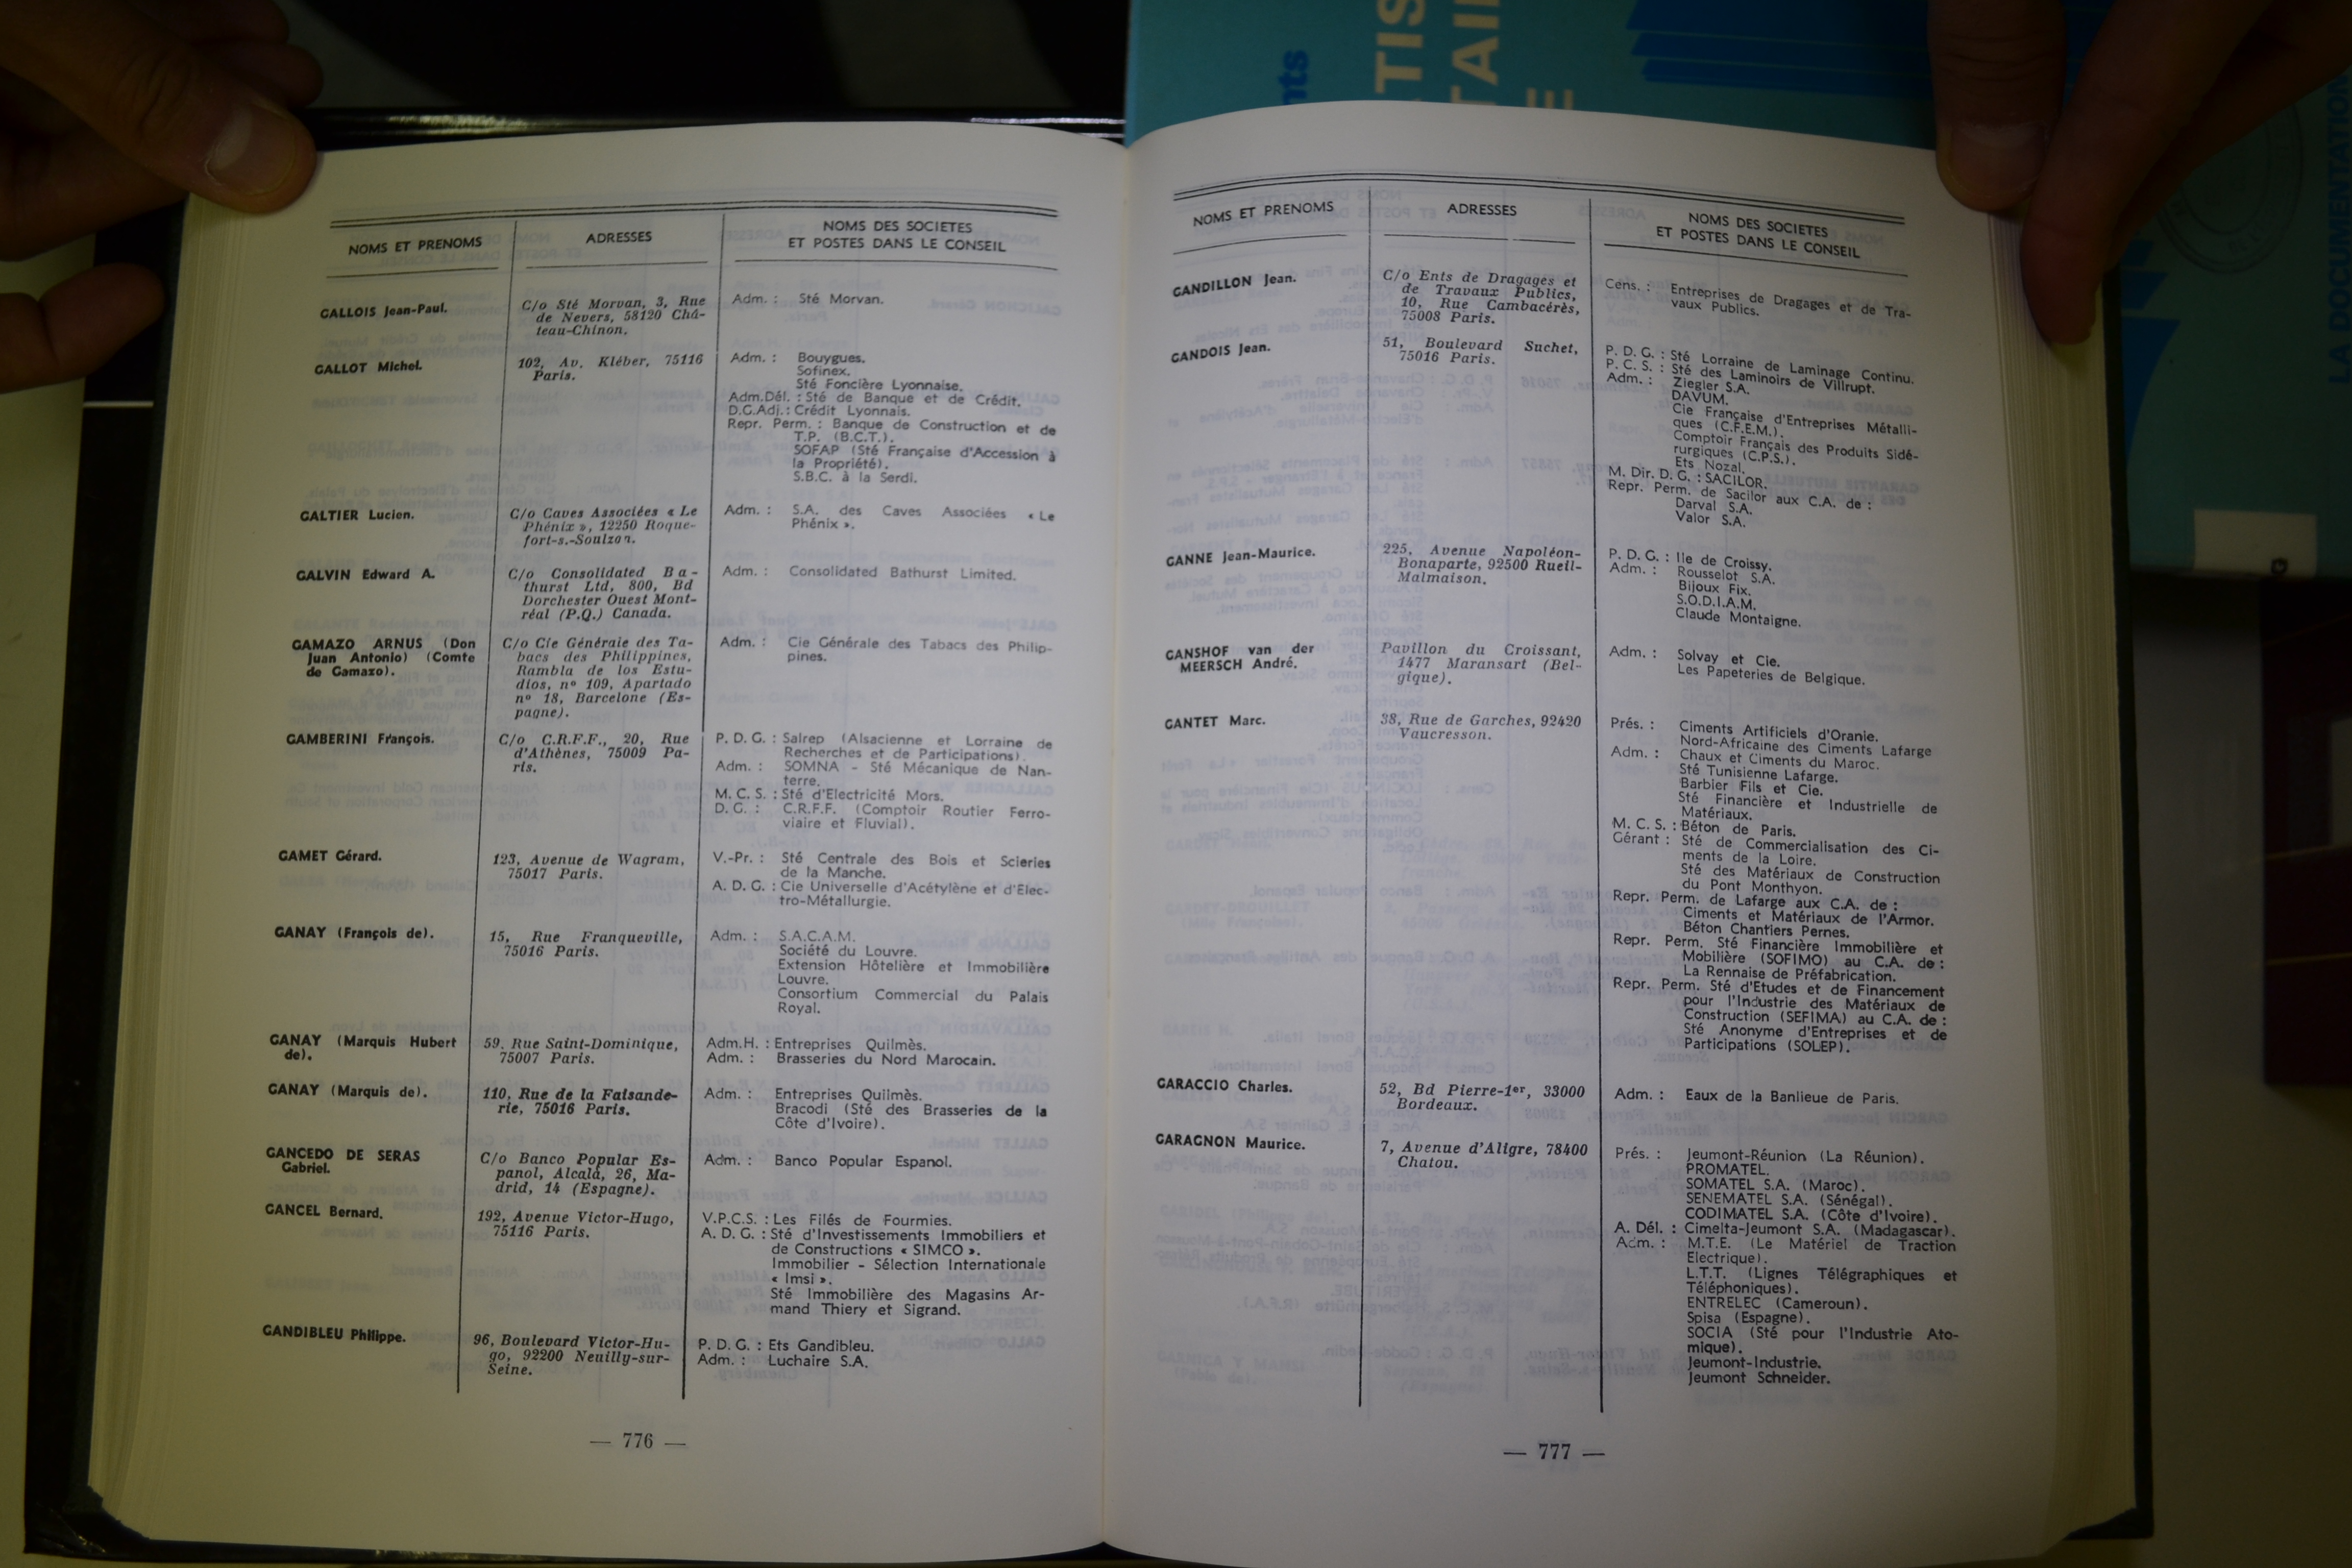 NOMS ET PRENOMS
ADRESSES
NOMS DES SOCIETES
ET POSTES DANS LE CONSEIL
GALLOIS Jean-Paul.
C/o Sté Morvan, 3, Rue
de Nevers, 58120 Châ-
teau-Chinon.
Adm. : Sté Morvan.
GALLOT Michel.
102, Av. Kléber, 75116
Paris.
Adm. : Bouygues.
Sofinex.
Sté Foncière Lyonnaise.
Adm.Dél. : Sté de Banque et de Crédit.
D.G.Adj. : Crédit Lyonnais.
Repr. Perm. : Banque de Construction et de
T.P. (B.C.T.).
SOFAP (Sté Française d'Accession à
la Propriété).
S.B.C. à la Serdi.
GALTIER Lucien.
C/o Caves Associées « Le
Phénix », 12250 Roque-
fort-s.-Soulzon.
Adm. : S.A. des Caves Associées « Le
Phénix ».
GALVIN Edward A.
C/o Consolidated Ba-
thurst Ltd, 800, Bd
Dorchester Ouest Mont-
réal (P.Q.) Canada.
Adm. : Consolidated Bathurst Limited.
GAMAZO ARNUS (Don
Juan Antonio) (Comte
de Gamazo).
C/o Cie Générale des Ta-
bacs des Philippines,
Rambla de los Estu-
dios, nº 109, Apartado
nº 18, Barcelone (Es-
pagne).
Adm. : Cie Générale des Tabacs des Philip-
pines.
GAMBERINI François.
C/o C.R.F.F., 20, Rue
d'Athènes, 75009 Pa-
ris.
P. D. G. : Salrep (Alsacienne et Lorraine de
Recherches et de Participations).
Adm. : SOMNA - Sté Mécanique de Nan-
terre.
M. C. S. : Sté d'Electricité Mors.
D. G. : C.R.F.F. (Comptoir Routier Ferro-
viaire et Fluvial).
GAMET Gérard.
123, Avenue de Wagram,
75017 Paris.
V.-Pr. : Sté Centrale des Bois et Scieries
de la Manche.
A. D. G. : Cie Universelle d'Acétylène et d'Elec-
tro-Métallurgie.
GANAY (François de).
15, Rue Franqueville,
75016 Paris.
Adm. : S.A.C.A.M.
Société du Louvre.
Extension Hôtelière et Immobilière
Louvre.
Consortium Commercial du Palais
Royal.
GANAY (Marquis Hubert
de).
59, Rue Saint-Dominique,
75007 Paris.
Adm.H. : Entreprises Quilmès.
Adm. : Brasseries du Nord Marocain.
GANAY (Marquis de).
110, Rue de la Faisande-
rie, 75016 Paris.
Adm. : Entreprises Quilmès.
Bracodi (Sté des Brasseries de la
Côte d'Ivoire).
GANCEDO DE SERAS
Gabriel.
C/o Banco Popular Es-
panol, Alcalá, 26, Ma-
drid, 14 (Espagne).
Adm. : Banco Popular Espanol.
GANCEL Bernard.
192, Avenue Victor-Hugo,
75116 Paris.
V.P.C.S. : Les Filés de Fourmies.
A. D. G. : Sté d'Investissements Immobiliers et
de Constructions « SIMCO ».
Immobilier - Sélection Internationale
« Imsi ».
Sté Immobilière des Magasins Ar-
mand Thiery et Sigrand.
GANDIBLEU Philippe.
96, Boulevard Victor-Hu-
go, 92200 Neuilly-sur-
Seine.
P. D. G. : Ets Gandibleu.
Adm. : Luchaire S.A.
— 776 —
NOMS ET PRENOMS
ADRESSES
NOMS DES SOCIETES
ET POSTES DANS LE CONSEIL
GANDILLON Jean.
C/o Ents de Dragages et
de Travaux Publics,
10, Rue Cambacérès,
75008 Paris.
Cens. : Entreprises de Dragages et de Tra-
vaux Publics.
GANDOIS Jean.
51, Boulevard Suchet,
75016 Paris.
P. D. G. : Sté Lorraine de Laminage Continu.
P. C. S. : Sté des Laminoirs de Villrupt.
Adm. : Ziegler S.A.
DAVUM.
Cie Française d'Entreprises Métalli-
ques (C.F.E.M.).
Comptoir Français des Produits Sidé-
rurgiques (C.P.S.).
Ets Nozal.
M. Dir. D. G. : SACILOR.
Repr. Perm. de Sacilor aux C.A. de :
Darval S.A.
Valor S.A.
GANNE Jean-Maurice.
225, Avenue Napoléon-
Bonaparte, 92500 Rueil-
Malmaison.
P. D. G. : Ile de Croissy.
Adm. : Rousselot S.A.
Bijoux Fix.
S.O.D.I.A.M.
Claude Montaigne.
GANSHOF van der
MEERSCH André.
Pavillon du Croissant,
1477 Maransart (Bel-
gique).
Adm. : Solvay et Cie.
Les Papeteries de Belgique.
GANTET Marc.
38, Rue de Garches, 92420
Vaucresson.
Prés. : Ciments Artificiels d'Oranie.
Nord-Africaine des Ciments Lafarge
Adm. : Chaux et Ciments du Maroc.
Sté Tunisienne Lafarge.
Barbier Fils et Cie.
Sté Financière et Industrielle de
Matériaux.
M. C. S. : Béton de Paris.
Gérant : Sté de Commercialisation des Ci-
ments de la Loire.
Sté des Matériaux de Construction
du Pont Monthyon.
Repr. Perm. de Lafarge aux C.A. de :
Ciments et Matériaux de l'Armor.
Béton Chantiers Pernes.
Repr. Perm. Sté Financière Immobilière et
Mobilière (SOFIMO) au C.A. de :
La Rennaise de Préfabrication.
Repr. Perm. Sté d'Etudes et de Financement
pour l'Industrie des Matériaux de
Construction (SEFIMA) au C.A. de :
Sté Anonyme d'Entreprises et de
Participations (SOLEP).
GARACCIO Charles.
52, Bd Pierre-1er, 33000
Bordeaux.
Adm. : Eaux de la Banlieue de Paris.
GARAGNON Maurice.
7, Avenue d'Aligre, 78400
Chatou.
Prés. : Jeumont-Réunion (La Réunion).
PROMATEL.
SOMATEL S.A. (Maroc).
SENEMATEL S.A. (Sénégal).
CODIMATEL S.A. (Côte d'Ivoire).
A. Dél. : Cimelta-Jeumont S.A. (Madagascar).
Adm. : M.T.E. (Le Matériel de Traction
Electrique).
L.T.T. (Lignes Télégraphiques et
Téléphoniques).
ENTRELEC (Cameroun).
Spisa (Espagne).
SOCIA (Sté pour l'Industrie Ato-
mique).
Jeumont-Industrie.
Jeumont Schneider.
— 777 —
LA DOCUMENTATION